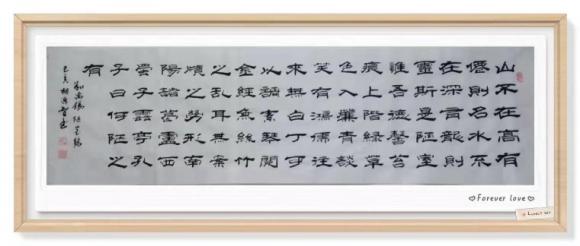 山不在高有
僊則名水不
在深有龍則
靈斯是陋室
惟吾德馨苔
痕上階綠草
色入簾青談
笑有鴻儒往
來無白丁可
以調素琴閱
金經無絲竹
之亂耳無案
牘之勞形南
陽諸葛廬西
蜀子雲亭孔
子曰何陋之
有
劉禹錫陋室銘
己亥
Forever love